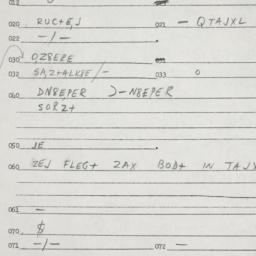 012
020 RUC+EJ 021 - QTAJXL
022 -/-
030 OZ8ERE
032 033 o
040 DN8EPER )-N8EPER
SORZ+
050 JE
060 ZEJ FLEG+ ZAX BOD+ IN TAJX
061 -
070 $
071 -/- 072 -